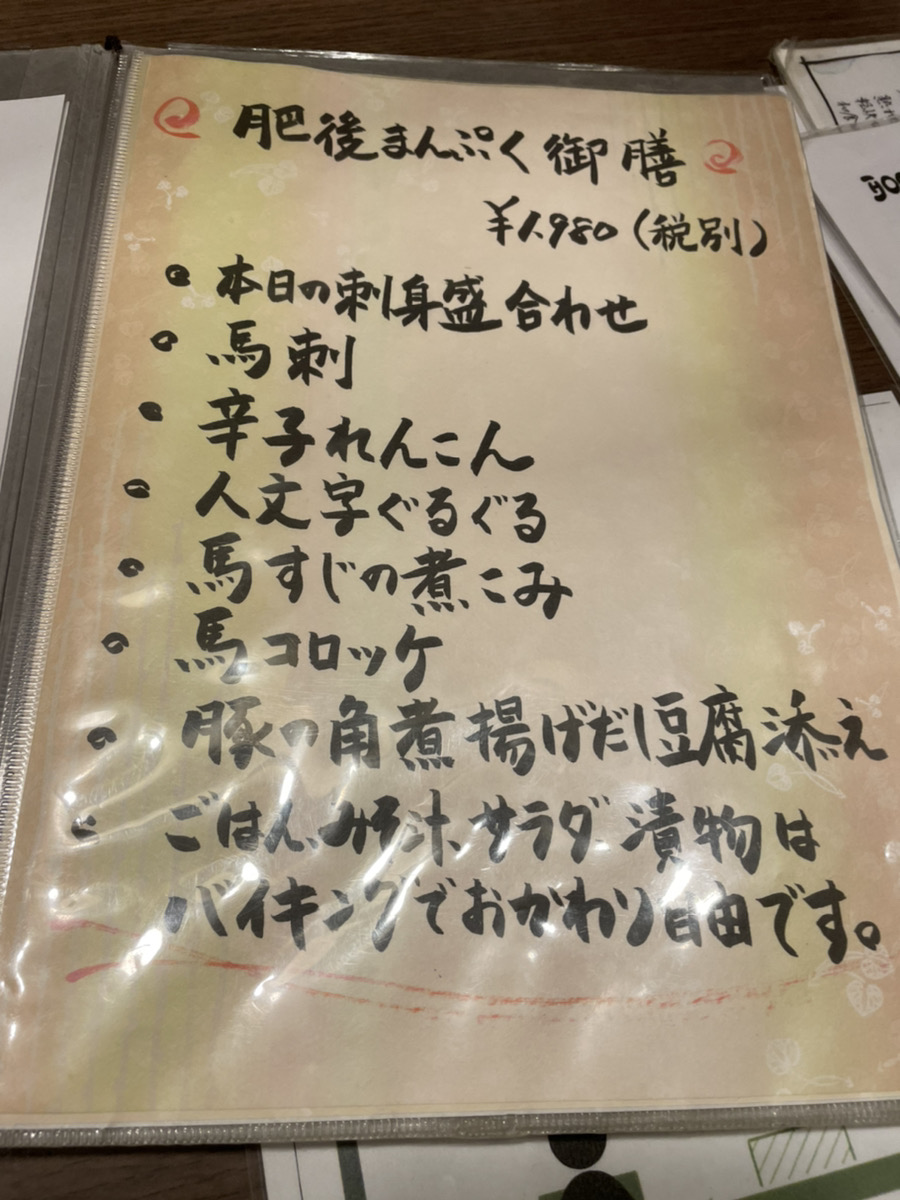 肥後まんぷく御膳
¥1,980（税別）
• 本日の刺身盛合わせ
• 馬刺
• 辛子れんこん
• 人文字ぐるぐる
• 馬すじの煮こみ
• 馬コロッケ
• 豚の角煮揚げだし豆腐添え
• ごはん、みそ汁、サラダ、漬物は
バイキングでおかわり自由です。